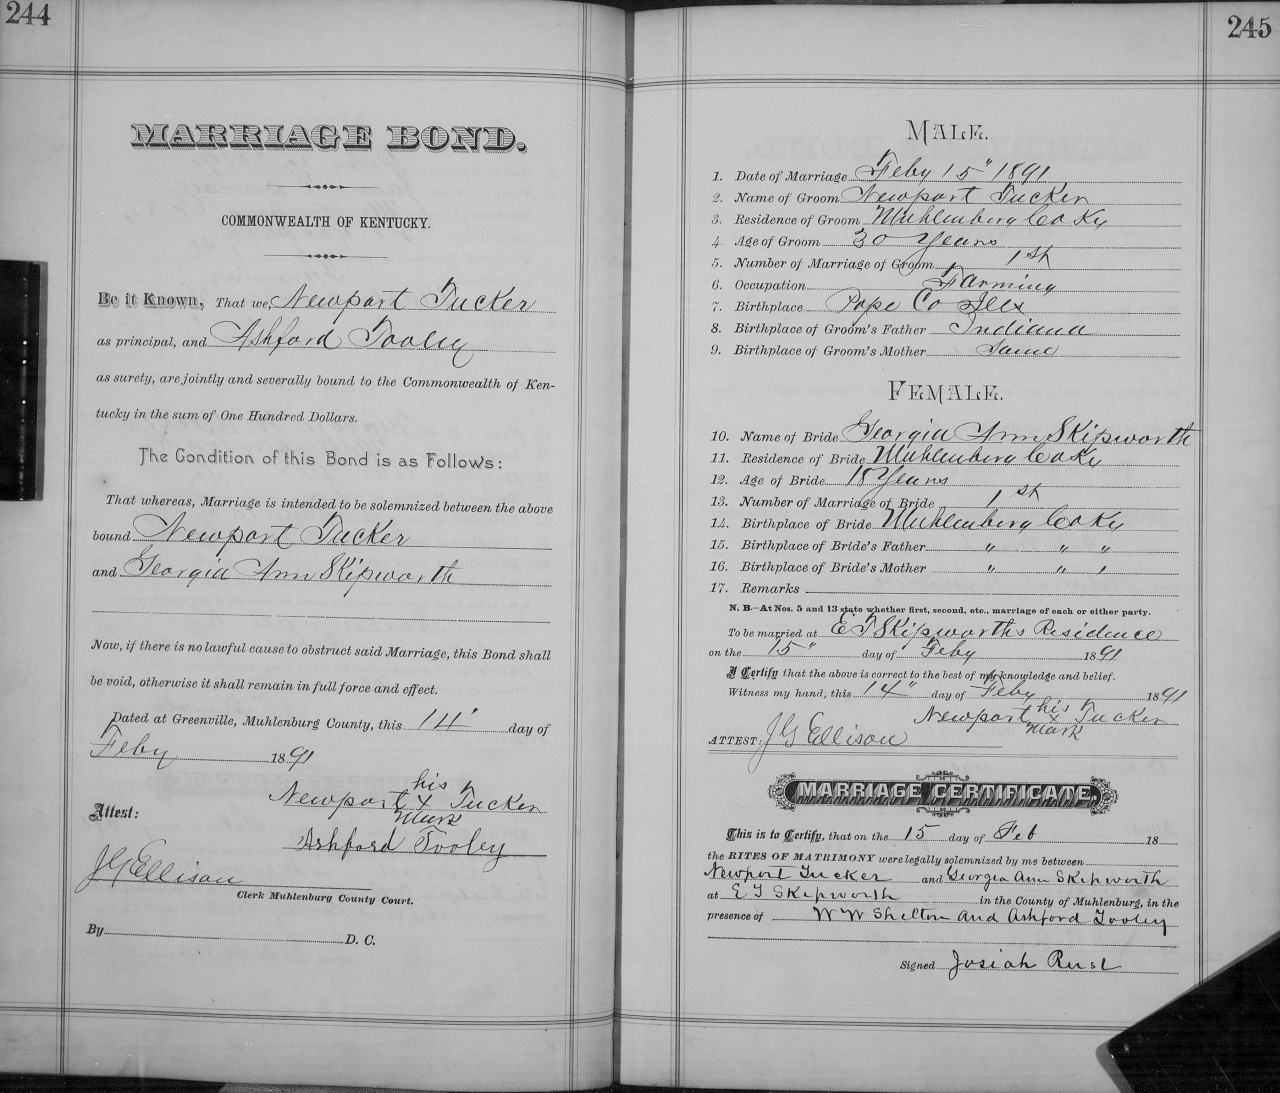 244
MARRIAGE BOND.
COMMONWEALTH OF KENTUCKY.
Be it Known, That we, Newport Tucker
as principal, and Ashford Tooley
as surety, are jointly and severally bound to the Commonwealth of Ken-
tucky in the sum of One Hundred Dollars.
The Condition of this Bond is as Follows:
That whereas, Marriage is intended to be solemnized between the above
bound Newport Tucker
and Georgia Ann Skipworth
Now, if there is no lawful cause to obstruct said Marriage, this Bond shall
be void, otherwise it shall remain in full force and effect.
Dated at Greenville, Muhlenburg County, this 14" day of
Feby 1891
his
Newport x Tucker
mark
Attest:
Ashford Tooley
J G Ellison
Clerk Muhlenburg County Court.
By D. C.
245
MALE.
1. Date of Marriage Feby 15" 1891
2. Name of Groom Newport Tucker
3. Residence of Groom Muhlenberg Co Ky
4. Age of Groom 30 Years
5. Number of Marriage of Groom 1st
6. Occupation Farming
7. Birthplace Pope Co Ills
8. Birthplace of Groom's Father Indiana
9. Birthplace of Groom's Mother Same
FEMALE.
10. Name of Bride Georgia Ann Skipworth
11. Residence of Bride Muhlenberg Co Ky
12. Age of Bride 18 Years
13. Number of Marriage of Bride 1st
14. Birthplace of Bride Muhlenberg Co Ky
15. Birthplace of Bride's Father " " "
16. Birthplace of Bride's Mother " " "
17. Remarks
N. B.—At Nos. 5 and 13 state whether first, second, etc., marriage of each or either party.
To be married at E T Skipworths Residence
on the 15" day of Feby 1891
I Certify that the above is correct to the best of my knowledge and belief.
Witness my hand, this 14" day of Feby 1891
his
Newport x Tucker
mark
ATTEST: J G Ellison
MARRIAGE CERTIFICATE.
This is to Certify, that on the 15 day of Feb 18
the RITES OF MATRIMONY were legally solemnized by me between
Newport Tucker and Georgia Ann Skipworth
at E T Skipworth in the County of Muhlenburg, in the
presence of W W Shelton and Ashford Tooley
Signed Josiah Rust